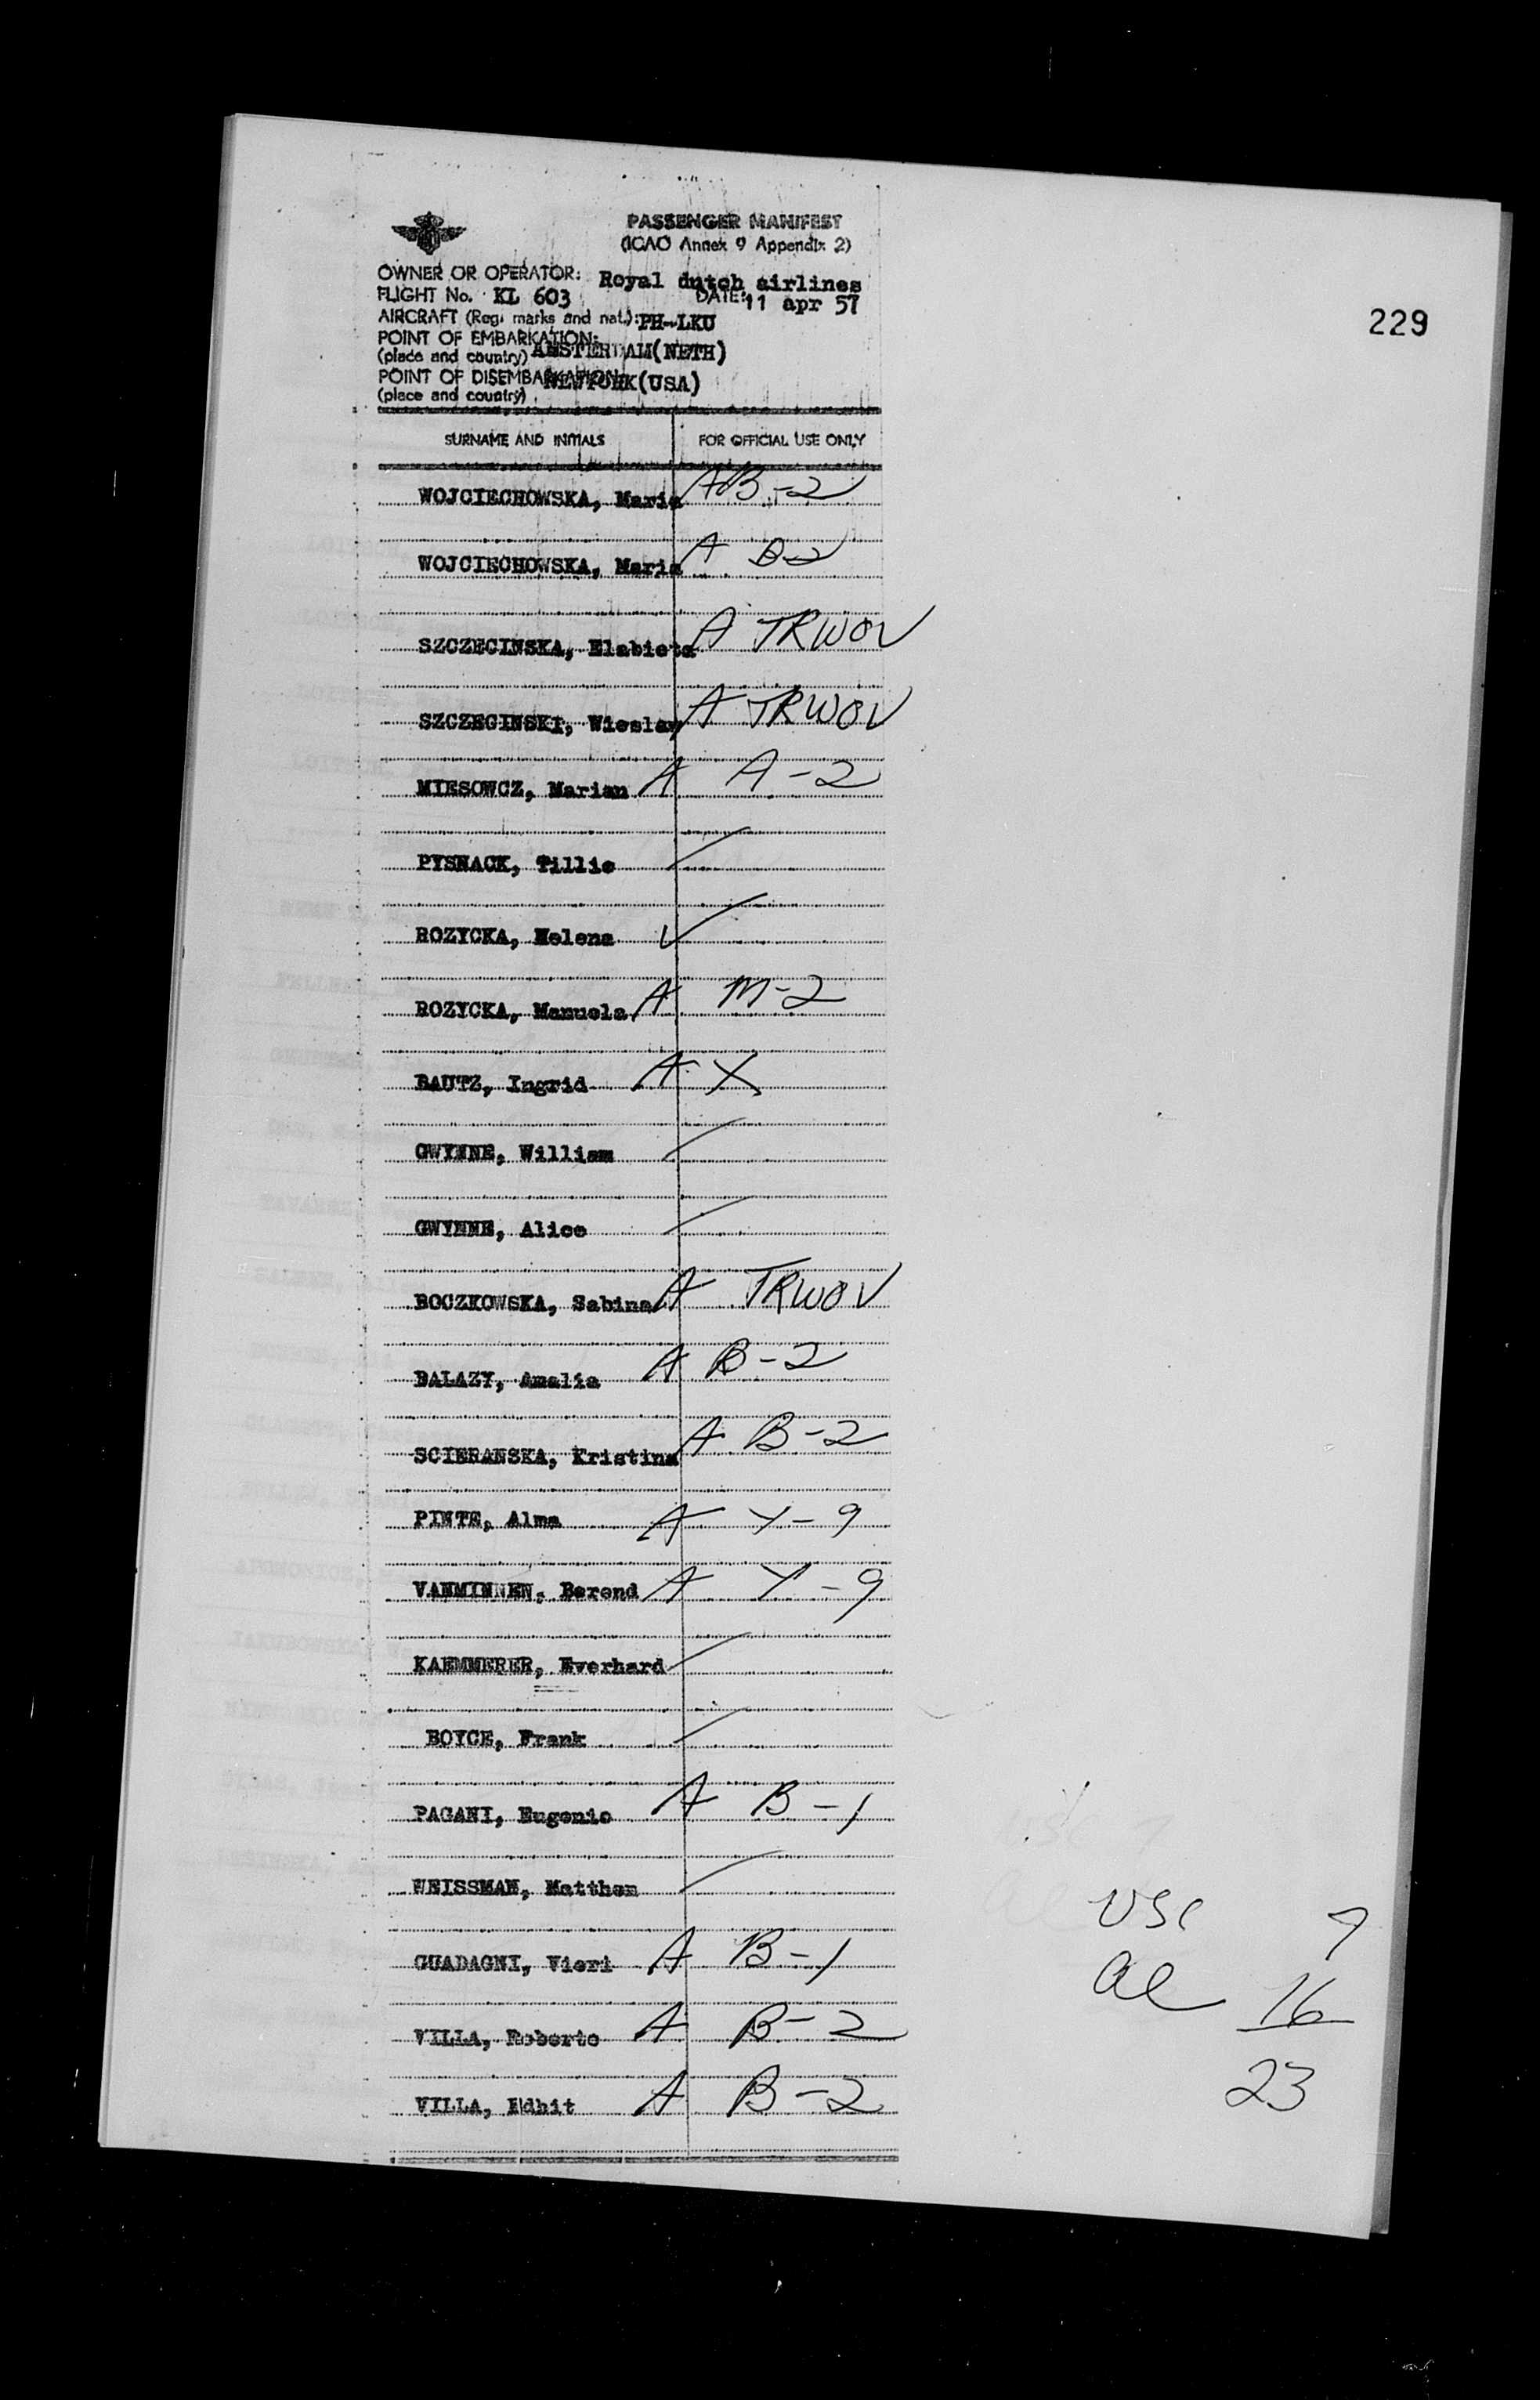 229
PASSENGER MANIFEST
(ICAO Annex 9 Appendix 2)
OWNER OR OPERATOR: Royal dutch airlines
FLIGHT No. KL 603 DATE: 11 apr 57
AIRCRAFT (Reg. marks and nat.): PH-LKU
POINT OF EMBARKATION:
(place and country) AMSTERDAM(NETH)
POINT OF DISEMBARKATION: NEWYORK(USA)
(place and country)
SURNAME AND INITIALS FOR OFFICIAL USE ONLY
WOJCIECHOWSKA, Maria A B-2
WOJCIECHOWSKA, Maria A B-2
SZCZECINSKA, Elabieta A TRWOV
SZCZECINSKI, Wieslaw A TRWOV
MIESOWCZ, Marian A A-2
PYSNACK, Tillie
ROZYCKA, Helena ✓
ROZYCKA, Manuela A M-2
BAUTZ, Ingrid A X
GWYNNE, William
GWYNNE, Alice
BOCZKOWSKA, Sabina A TRWOV
BALAZY, Amalia A B-2
SCIERANSKA, Kristina A B-2
PINTE, Alma A Y-9
VANMINNEN, Berend A Y-9
KAEMMERER, Everhard
BOYCE, Frank
PAGANI, Eugenio A B-1
WEISSMAN, Matthew
GUADAGNI, Vieri A B-1
VILLA, Roberto A B-2
VILLA, Edhit A B-2
USC 7
al 16
23